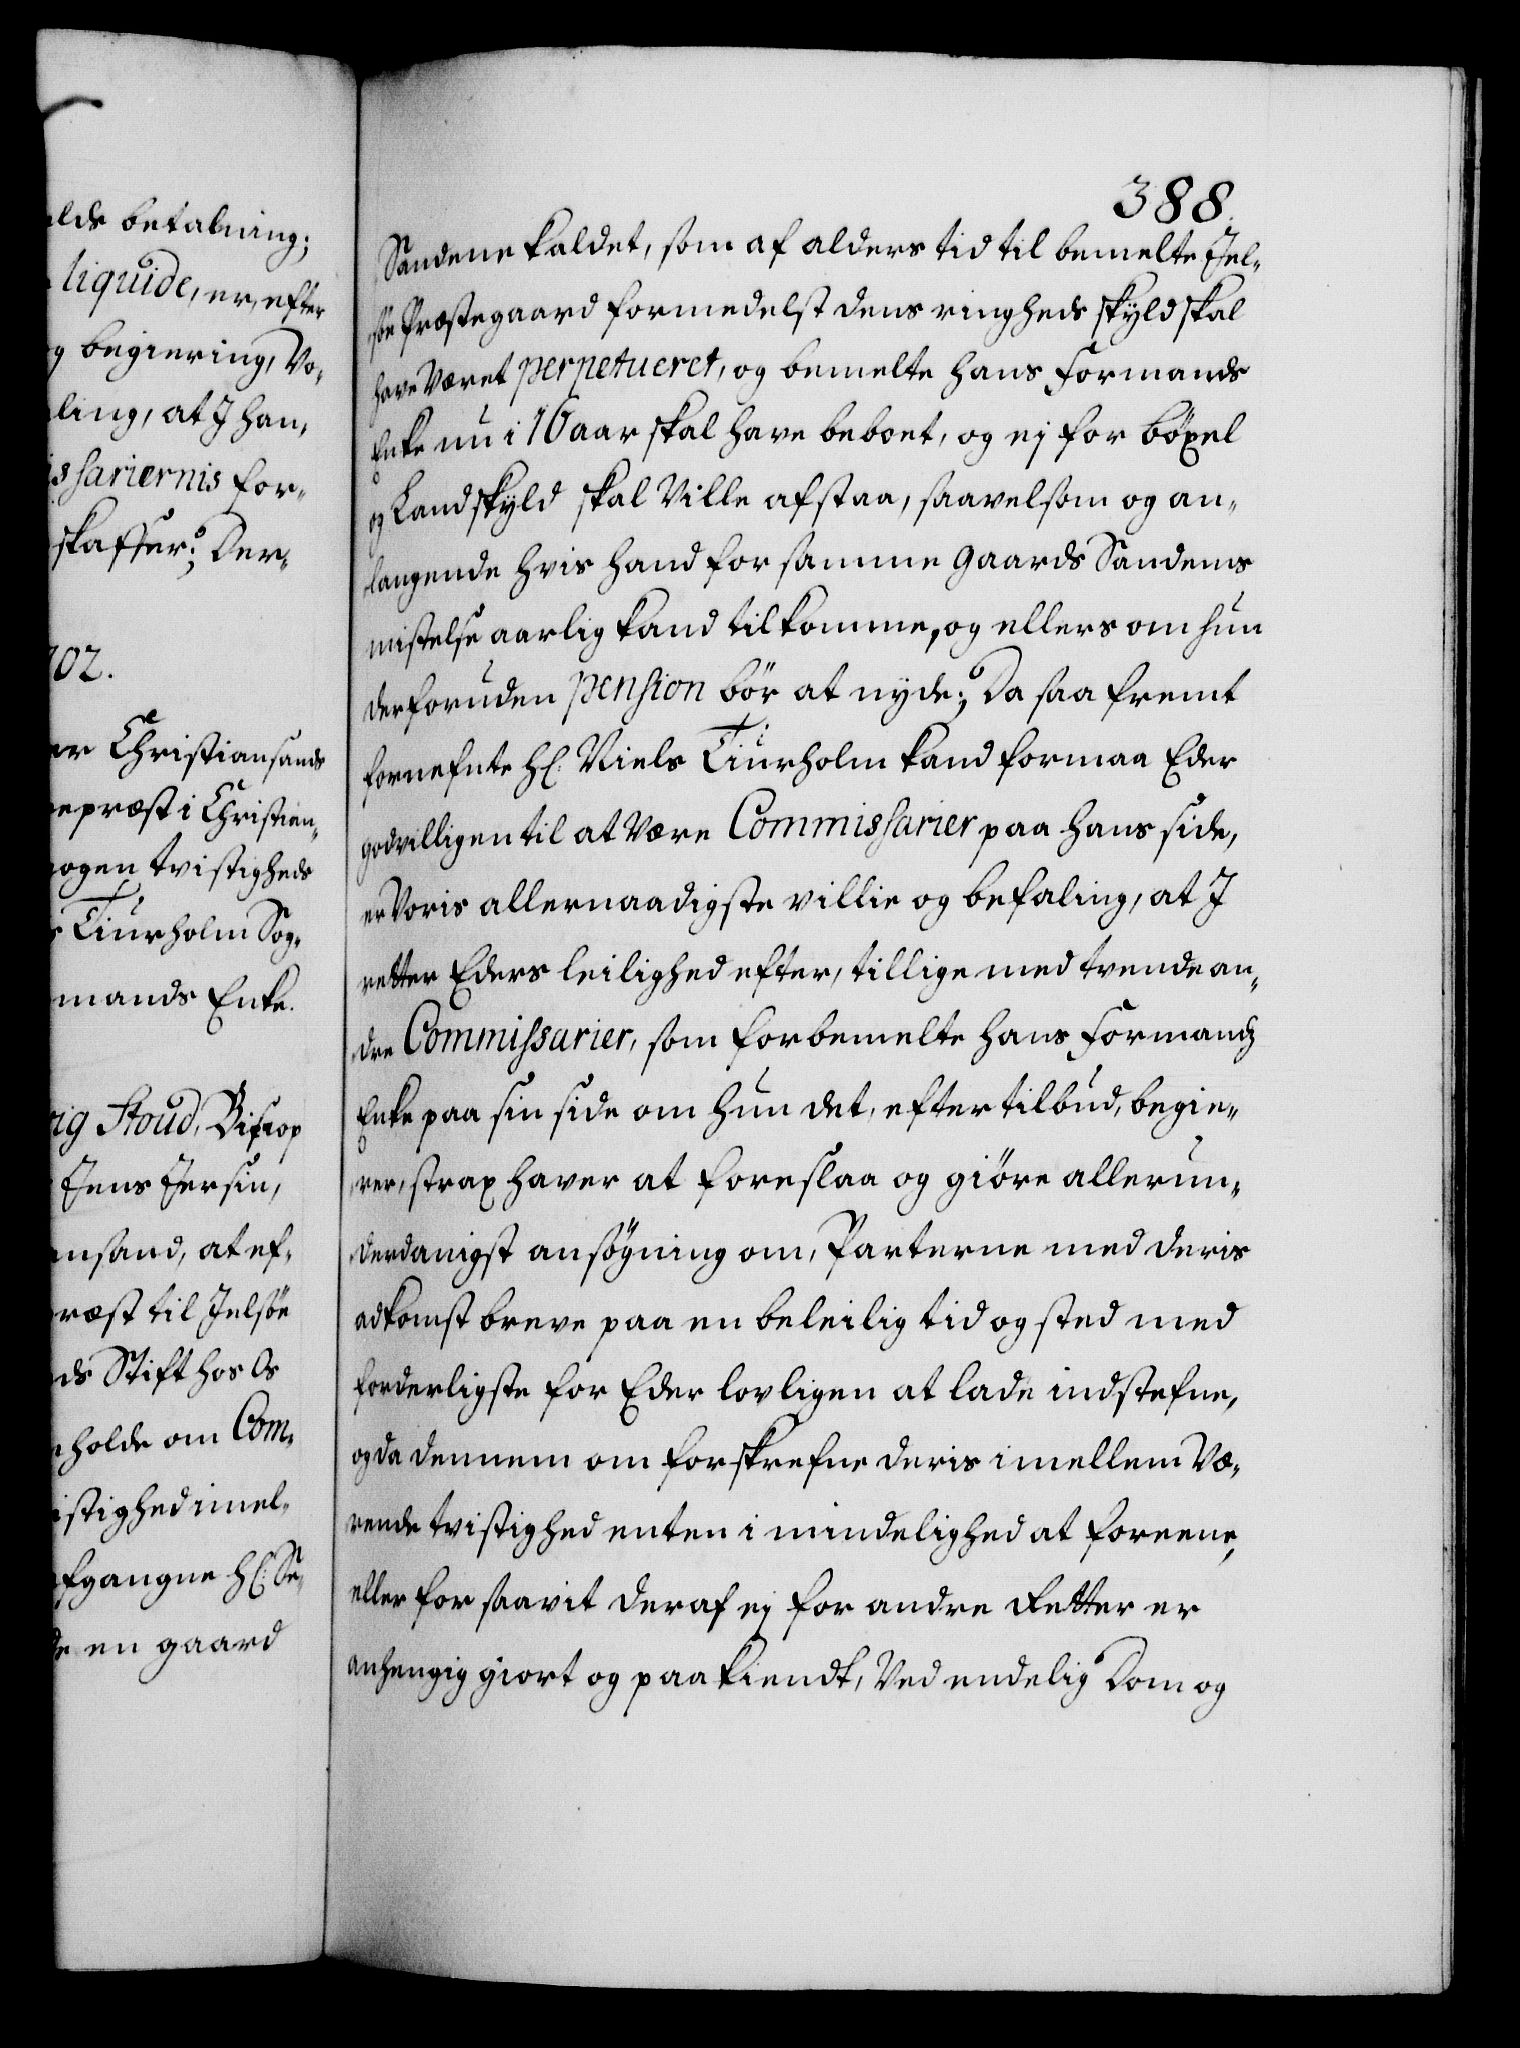 alds betalning;
liquide, er, efter
og begiering, Vo-
ling, at I han,
issariernis for-
skaffer; Der-
702.
er Christiansands
nepræst i Christian-
nogen tvistigheds
s Tiurholm Sog-
mands Enke.
vig Stoud, Biscop
Jens Jersin,
ansand, at ef-
ræst til Jelsöe
ds Stift hos Os
holde om Com-
istighed imel-
afgangne Hl: Se-
de en gaard
388.
Sandene kaldet, som af alders tid til bemelte Jel-
söe Præstegaard formedelst dens ringheds skyld skal
have været perpetueret, og bemelte hans Formands
Enke nu i 16 aar skal have beboet, og ej for böxel
og Landskyld skal Ville afstaa, saavelsom og an-
langende hvis hand for samme gaards Sandenes
mistelse aarlig kand tilkomme, og ellers om hun
derforuden pension bör at nyde; Da saa fremt
fornefnte Hl: Niels Tiurholm kand formaa Eder
godvilligen til at Være Commissarier paa hans side,
er Voris allernaadigste villie og befaling, at I
retter Eders leilighed efter, tillige med tvende an-
dre Commissarier, som forbemelte hans Formands
Enke paa sin side om hun det, efter tilbud, begie-
rer, strax haver at foreslaa og giöre allerun-
derdanigst ansögning om, Parterne med deris
adkomst breve paa en beleilig tid og sted med
forderligste for Eder lovligen at lade indstefne,
og da dennem om forskrefne deris imellem Væ-
rende tvistighed enten i mindelighed at foreene,
eller for saavit deraf ej for andre Retter er
anhengig giort og paakiendt, Ved endelig Dom og